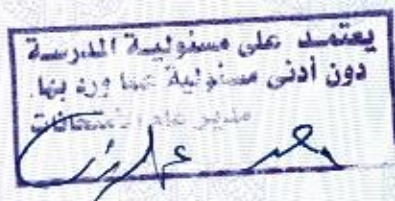 يعتمد على مسئولية المدرسة
دون أدنى مسئولية عما ورد بها.
مدير عام الامتحانات